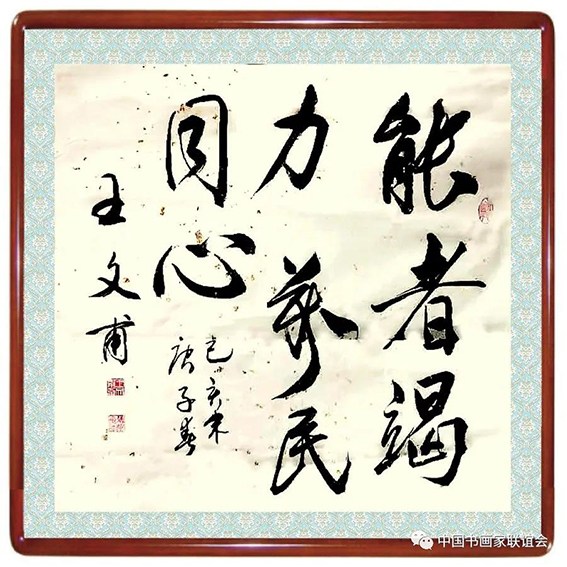 能者竭
力萬民
同心
己亥末
庚子春
王文甫
中国书画家联谊会